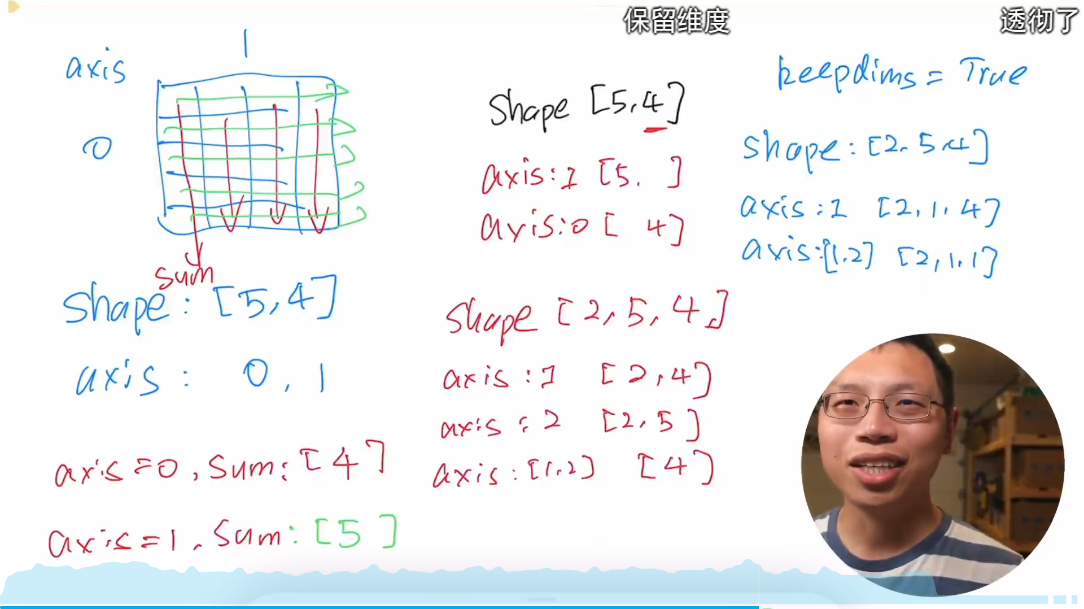 保留维度
透彻了
axis
1
0
sum
shape: [5,4]
axis: 0, 1
axis=0, sum: [4]
axis=1, sum: [5]
shape [5,4]
axis:1 [5, ]
axis:0 [ 4]
shape [2,5,4,]
axis:1 [2,4]
axis:2 [2,5]
axis:[1,2] [4]
keepdims = True
shape: [2,5,4]
axis:1 [2,1,4]
axis:[1,2] [2,1,1]